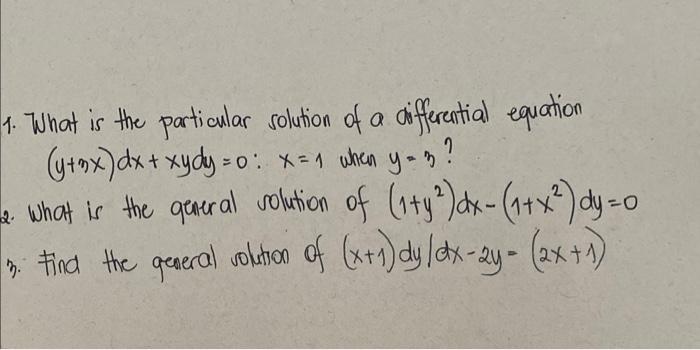 1. What is the particular solution of a differential equation
(y+3x)dx + xydy = 0: x = 1 when y = 3?
2. What is the general solution of (1+y²)dx - (1+x²)dy = 0
3. Find the general solution of (x+1)dy/dx - 2y = (2x+1)